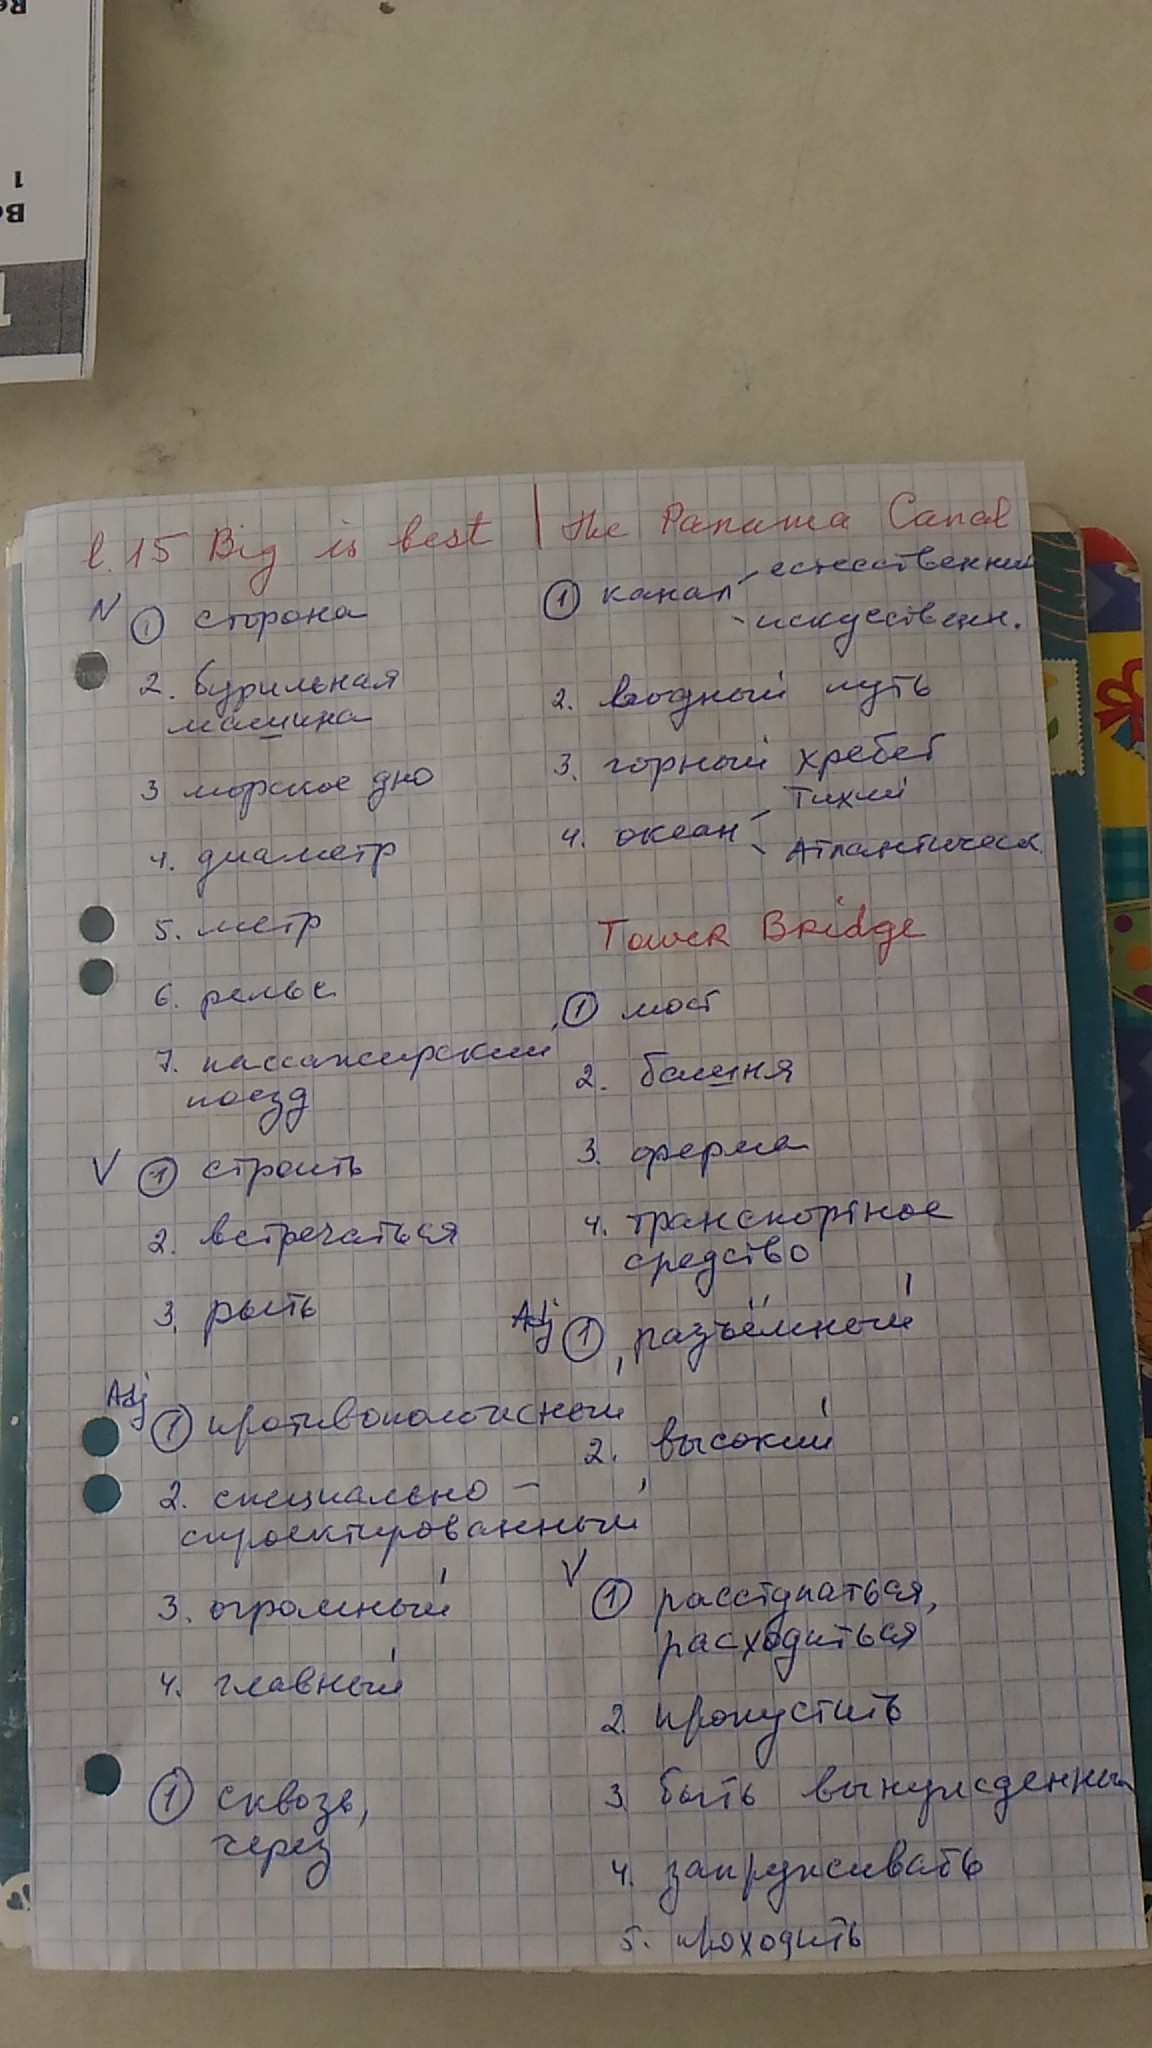 l. 15 Big is best
N ① сторона
2. бурильная
машина
3 морское дно
4. диаметр
5. метр
6. рельс
7. пассажирский
поезд
V ① строить
2. встречаться
3. рыть
Adj ① противоположный
2. специально –
спроектированный
3. огромный
4. главный
① сквозь,
через
The Panama Canal
① канал естественный
искусствен.
2. водный путь
3. горный хребет
4. океан Тихий
Атлантическ.
Tower Bridge
① мост
2. башня
3. ферма
4. транспортное
средство
Adj ① разъёмный
2. высокий
V ① расступаться,
расходиться
2. пропустить
3. быть вынужденным
4. запруживать
5. проходить